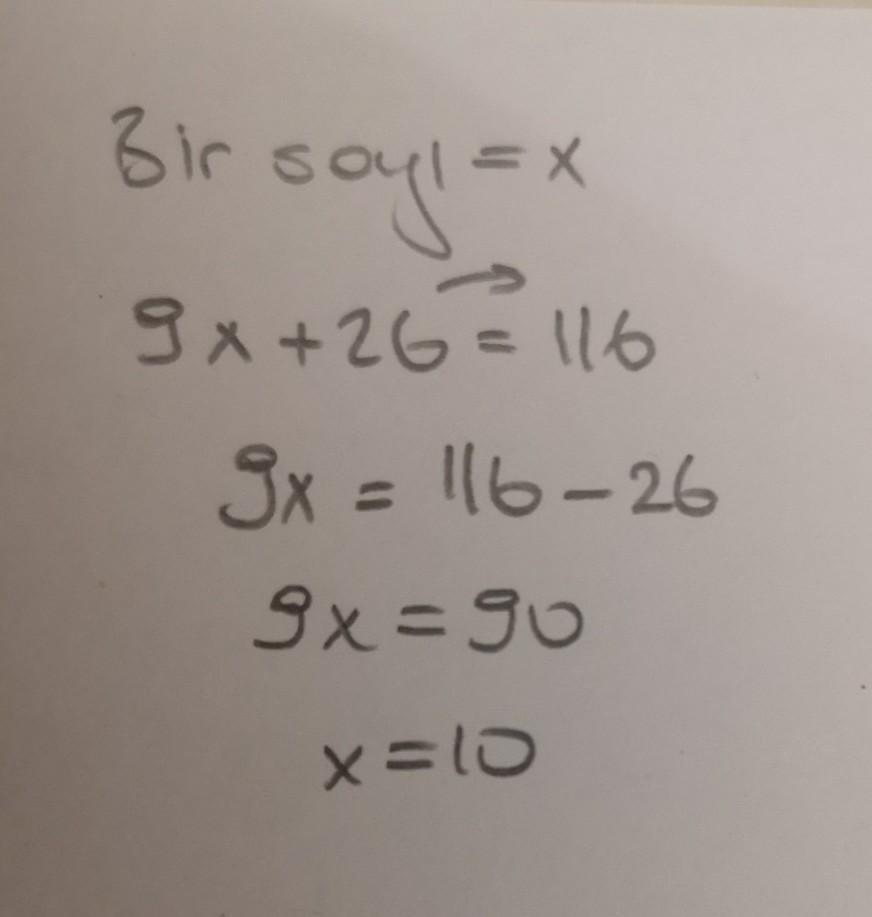 Bir sayı = x
9x + 26 = 116
9x = 116 - 26
9x = 90
x = 10